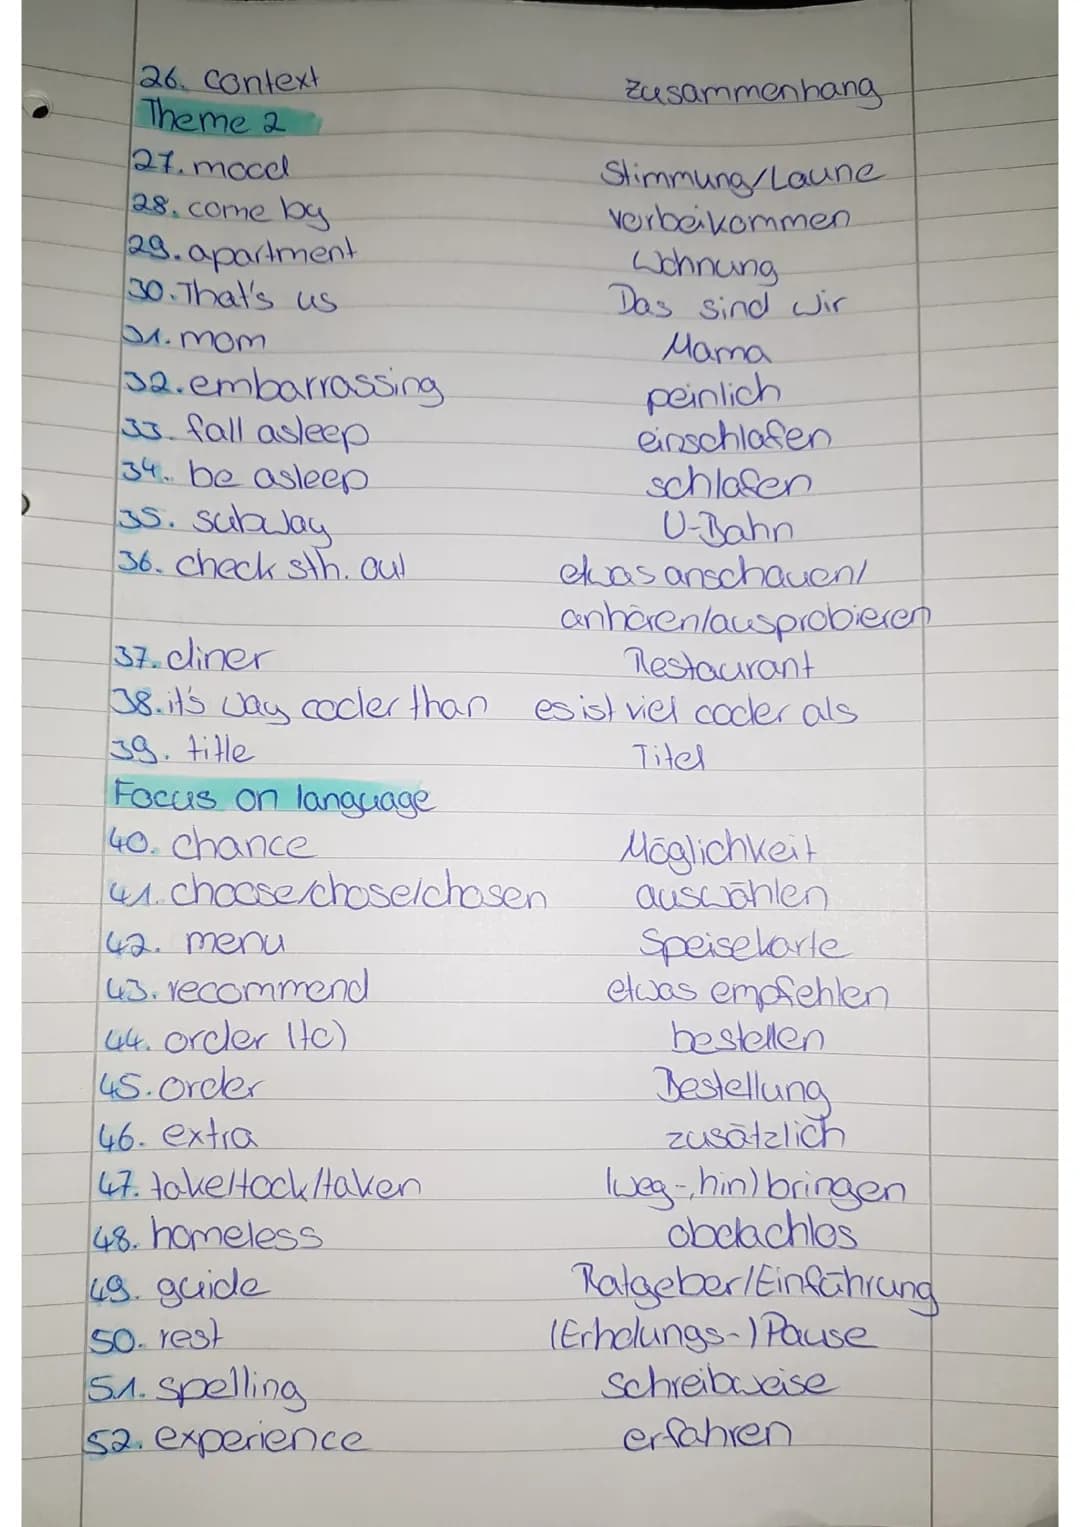 26. context Zusammenhang
Theme 2
27. mood Stimmung/Laune
28. come by vorbeikommen
29. apartment Wohnung
30. That's us Das sind wir
31. mom Mama
32. embarrassing peinlich
33. fall asleep einschlafen
34. be asleep schlafen
35. subway U-Bahn
36. check sth. out etwas anschauen/
anhören/ausprobieren
37. diner Restaurant
38. it's way cooler than es ist viel cooler als
39. title Titel
Focus on language
40. chance Möglichkeit
41. choose/chose/chosen auswählen
42. menu Speisekarte
43. recommend etwas empfehlen
44. order (to) bestellen
45. order Bestellung
46. extra zusätzlich
47. take/took/taken (weg-, hin) bringen
48. homeless obdachlos
49. guide Ratgeber/Einführung
50. rest (Erholungs-) Pause
51. spelling Schreibweise
52. experience erfahren